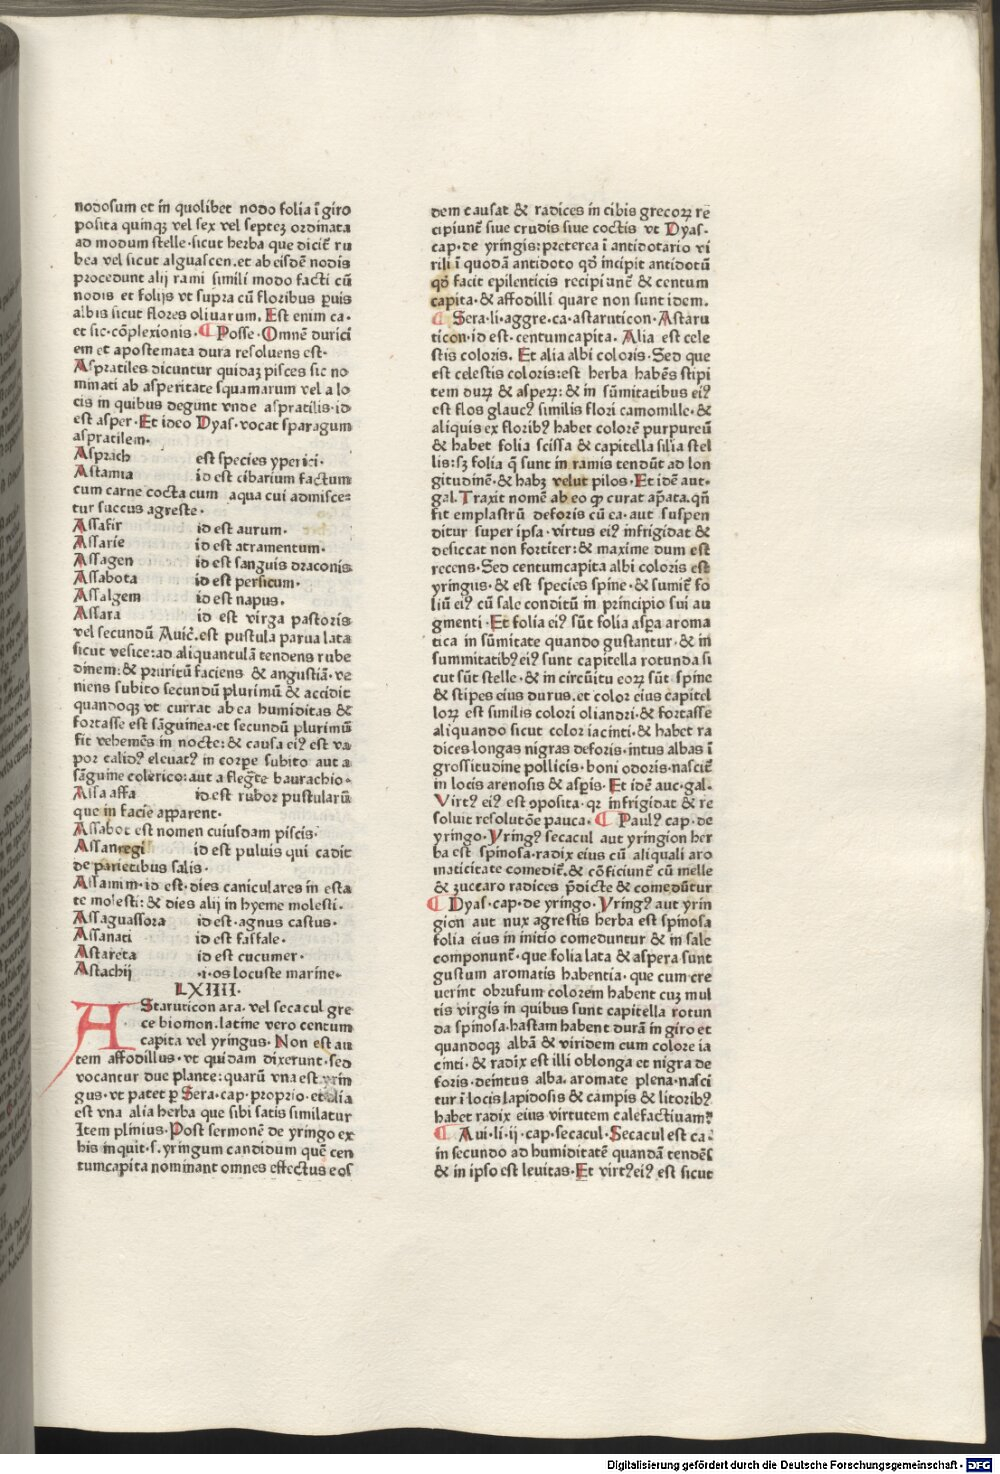 nodosum et in quolibet nodo folia ī giro
posita quinqȝ vel sex vel septeȝ ordinata
ad modum stelle·sicut herba que dicit̄ ru
bea vel sicut alguascen.et ab eisdē nodis
procedunt alij rami simili modo facti cū
nodis et folijs vt supra cū floribus puis
albis sicut flores oliuarum. Est enim ca·
et sic·cōplexionis·¶ Posse·Omnē durici
em et apostemata dura resoluens est·
Aspratiles dicuntur quidaȝ pisces sic no
minati ab asperitate squamarum vel a lo
cis in quibus degunt vnde aspratilis·id
est asper·Et ideo Dyas·vocat sparagum
aspratilem·
Asprach est species yperici·
Astamia id est cibarium factum
cum carne cocta cum aqua cui admisce⸗
tur succus agreste·
Assafir id est aurum·
Assarie id est atramentum·
Assagen id est sanguis draconis
Assabota id est persicum·
Assalgem id est napus·
Assara id est virga pastoris
vel secundū Auic̄.est pustula parua lata
sicut vesice:ad aliquantulā tendens rube
dinem:& pruritū faciens & angustiā·ve
niens subito secundū plurimū & accidit
quandoqȝ vt currat ab ea humiditas &
fortasse est sāguinea·et secundū plurimū
fit vehemēs in nocte:& causa eiꝰ est va
por calidꝰ eleuatꝰ in corpe subito aut a
sāguine colerico:aut a flegt̄e baurachio·
Assa assa id est rubor pustularū
que in facie apparent·
Assabot est nomen cuiusdam piscis·
Assanregi id est puluis qui cadit
de parietibus salis·
Assamim·id est·dies caniculares in esta
te molesti:& dies alij in hyeme molesti·
Assaguassora id est·agnus castus·
Assanati id est fassale·
Astareta id est cucumer·
Astachij ·i·os locuste marine·
LXIIII·
AStaruticon ara·vel secacul gre
ce biomon·latine vero centum
capita vel yringus·Non est au
tem affodillus·vt quidam dixerunt·sed
vocantur due plante:quarū vna est yrin
gus·vt patet ꝑ Sera·cap·proprio·et alia
est vna alia herba que sibi satis similatur
Item plinius·Post sermonē de yringo ex
his inquit·s·yringum candidum quē cen
tumcapita nominant omnes effectus eos
dem causat & radices in cibis grecoꝝ re
cipiunt̄ siue crudis siue coctis vt Dyas·
cap·de yringis:preterea ī antidotario vi
rili ī quodā antidoto qd̄ incipit antidotū
qd̄ facit epilenticis recipiunt̄ & centum
capita·& affodilli quare non sunt idem·
¶ Sera·li·aggre·ca·astaruticon·Astaru
ticon·id est·centumcapita· Alia est cele
stis coloris. Et alia albi coloris·Sed que
est celestis coloris:est herba habēs stipi
tem duꝝ & aspeꝝ:& in sūmitatibus eiꝰ
est flos glaucꝰ similis flori camomille·&
aliquis ex floribꝰ habet colorē purpureū
& habet folia scissa & capitella silia stel
lis:sȝ folia q̄ sunt in ramis tendūt ad lon
gitudinē·& habȝ velut pilos·Et idē aut·
gal·Traxit nomē ab eo ꝙ curat ap̄ata·qn̄
fit emplastrū deforis cū ea·aut suspen
ditur super ipsa·virtus eiꝰ infrigidat &
desiccat non fortiter:& maxime dum est
recens·Sed centumcapita albi coloris est
yringus·& est species spine·& sumit̄ fo
liū eiꝰ cū sale conditū in principio sui au
gmenti·Et folia eiꝰ sūt folia asp̄a aroma
tica in sūmitate quando gustantur·& in
summitatibꝰ eiꝰ sunt capitella rotunda si
cut sūt stelle·& in circūitu eoꝝ sūt spine
& stipes eius durus.et color eius capitel
loꝝ est similis colori oliandri·& fortasse
aliquando sicut color iacinti·& habet ra
dices·longas nigras deforis·intus albas ī
grossitudine pollicis·boni odoris·nascit̄
in locis arenosis & asp̄is·Et idē auc·gal·
Virtꝰ eiꝰ est oposita·qꝛ infrigidat & re
soluit resolutōe pauca.¶ Paulꝰ cap·de
yringo·Yringꝰ secacul aut yringion her
ba est spinosa·radix eius cū aliquali aro
maticitate comedit̄·& cōficiunt̄ cū melle
& zuccaro radices p̄dicte & comedūtur
¶ Dyas·cap·de yringo·Yringꝰ aut yrin
gion aut nux agrestis herba est spinosa
folia eius in initio comeduntur & in sale
componunt̄·que folia lata & aspera sunt
gustum aromatis habentia·que cum cre
uerint obrufum colorem habent cuȝ mul
tis virgis in quibus sunt capitella rotun
da spinosa·hastam habent durā in giro et
quandoqȝ albā & viridem cum colore ia
cinti·& radix est illi oblonga et nigra de
foris·deintus alba·aromate plena·nasci
tur ī locis lapidosis & campis & litoribꝰ
habet radix eius virtutem calefactiuam·
¶ Aui·li·ij·cap·secacul·Secacul est ca·
in secundo ad humiditatē quandā tendēs
& in ipso est leuitas·Et virtꝰ eiꝰ est sicut
Digitalisierung gefördert durch die Deutsche Forschungsgemeinschaft - DFG